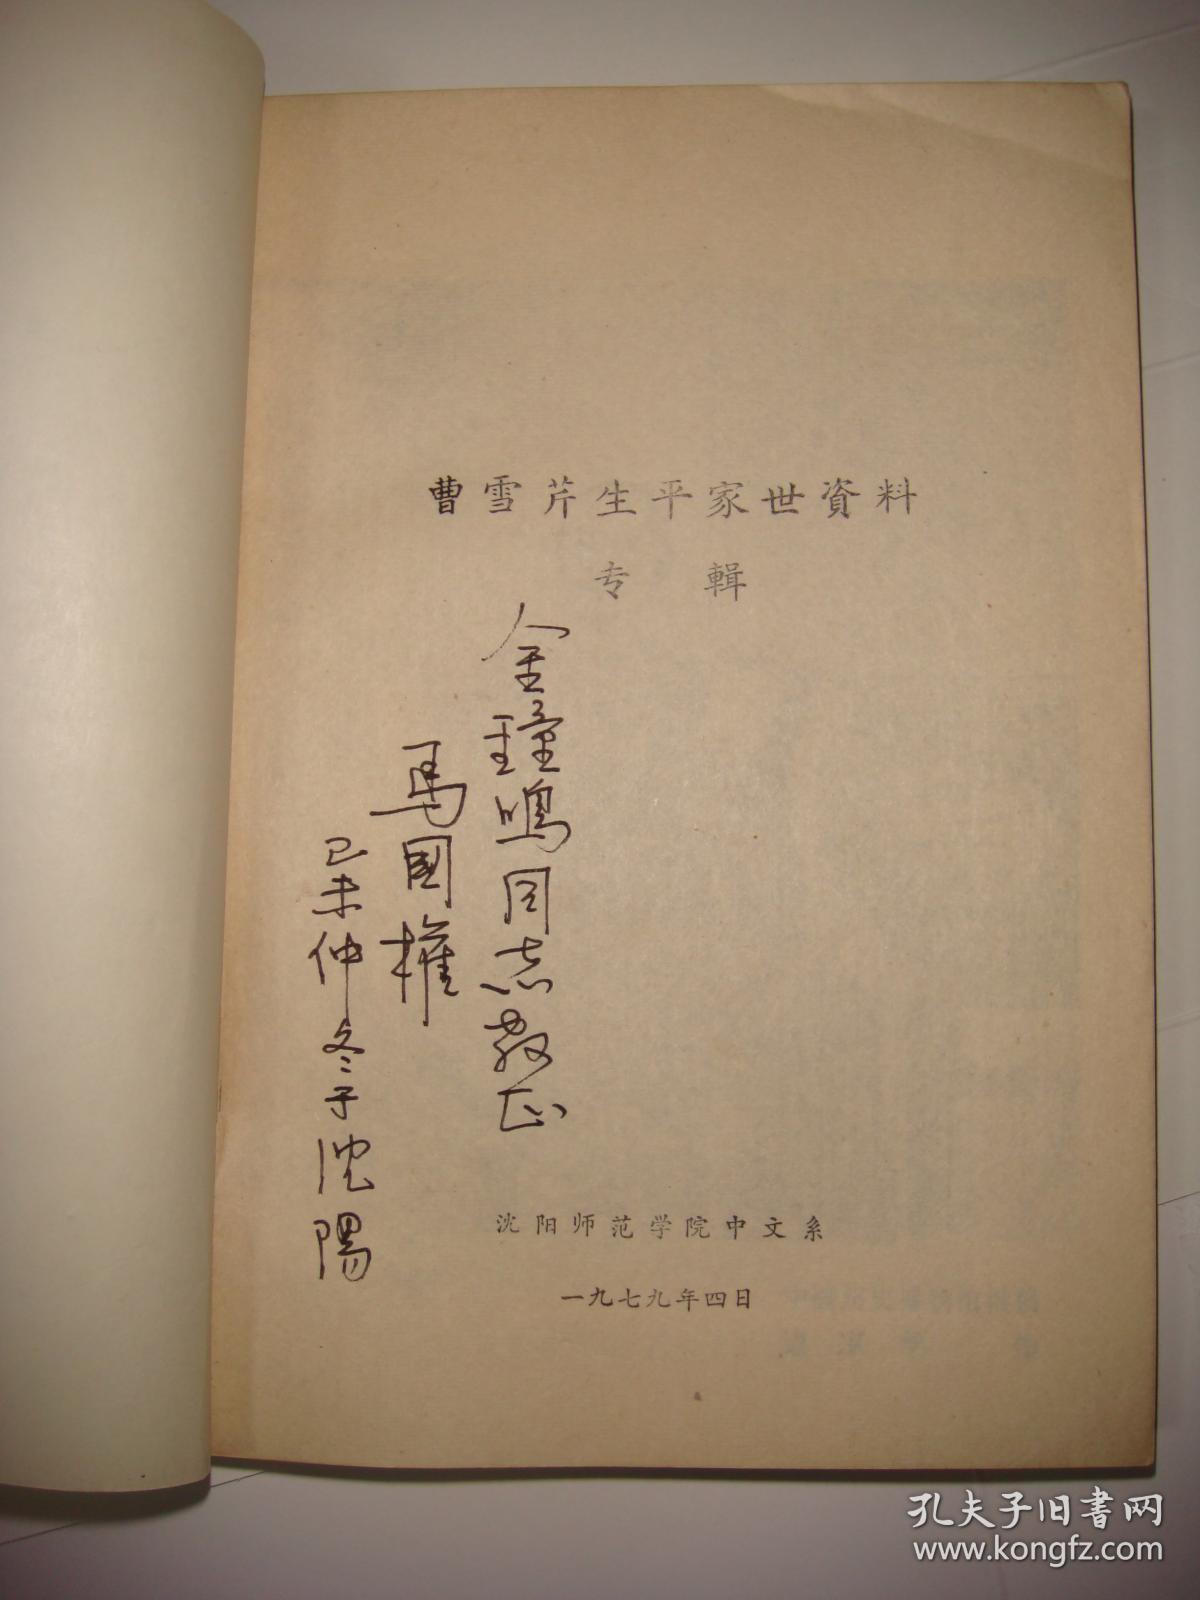 曹雪芹生平家世資料
专輯
金瑾鳴同志教正
馬國權
己未仲冬于沈陽
沈阳师范学院中文系
一九七九年四日
孔夫子旧书网
www.kongfz.com